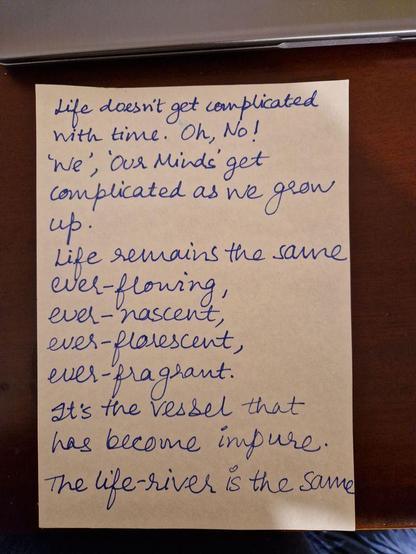 Life doesn't get complicated
with time. Oh, No!
'We', 'Our Minds' get
complicated as we grow
up.
Life remains the same
ever-flowing,
ever-nascent,
ever-florescent,
ever-fragrant.
It's the vessel that
has become impure.
The life-river is the same